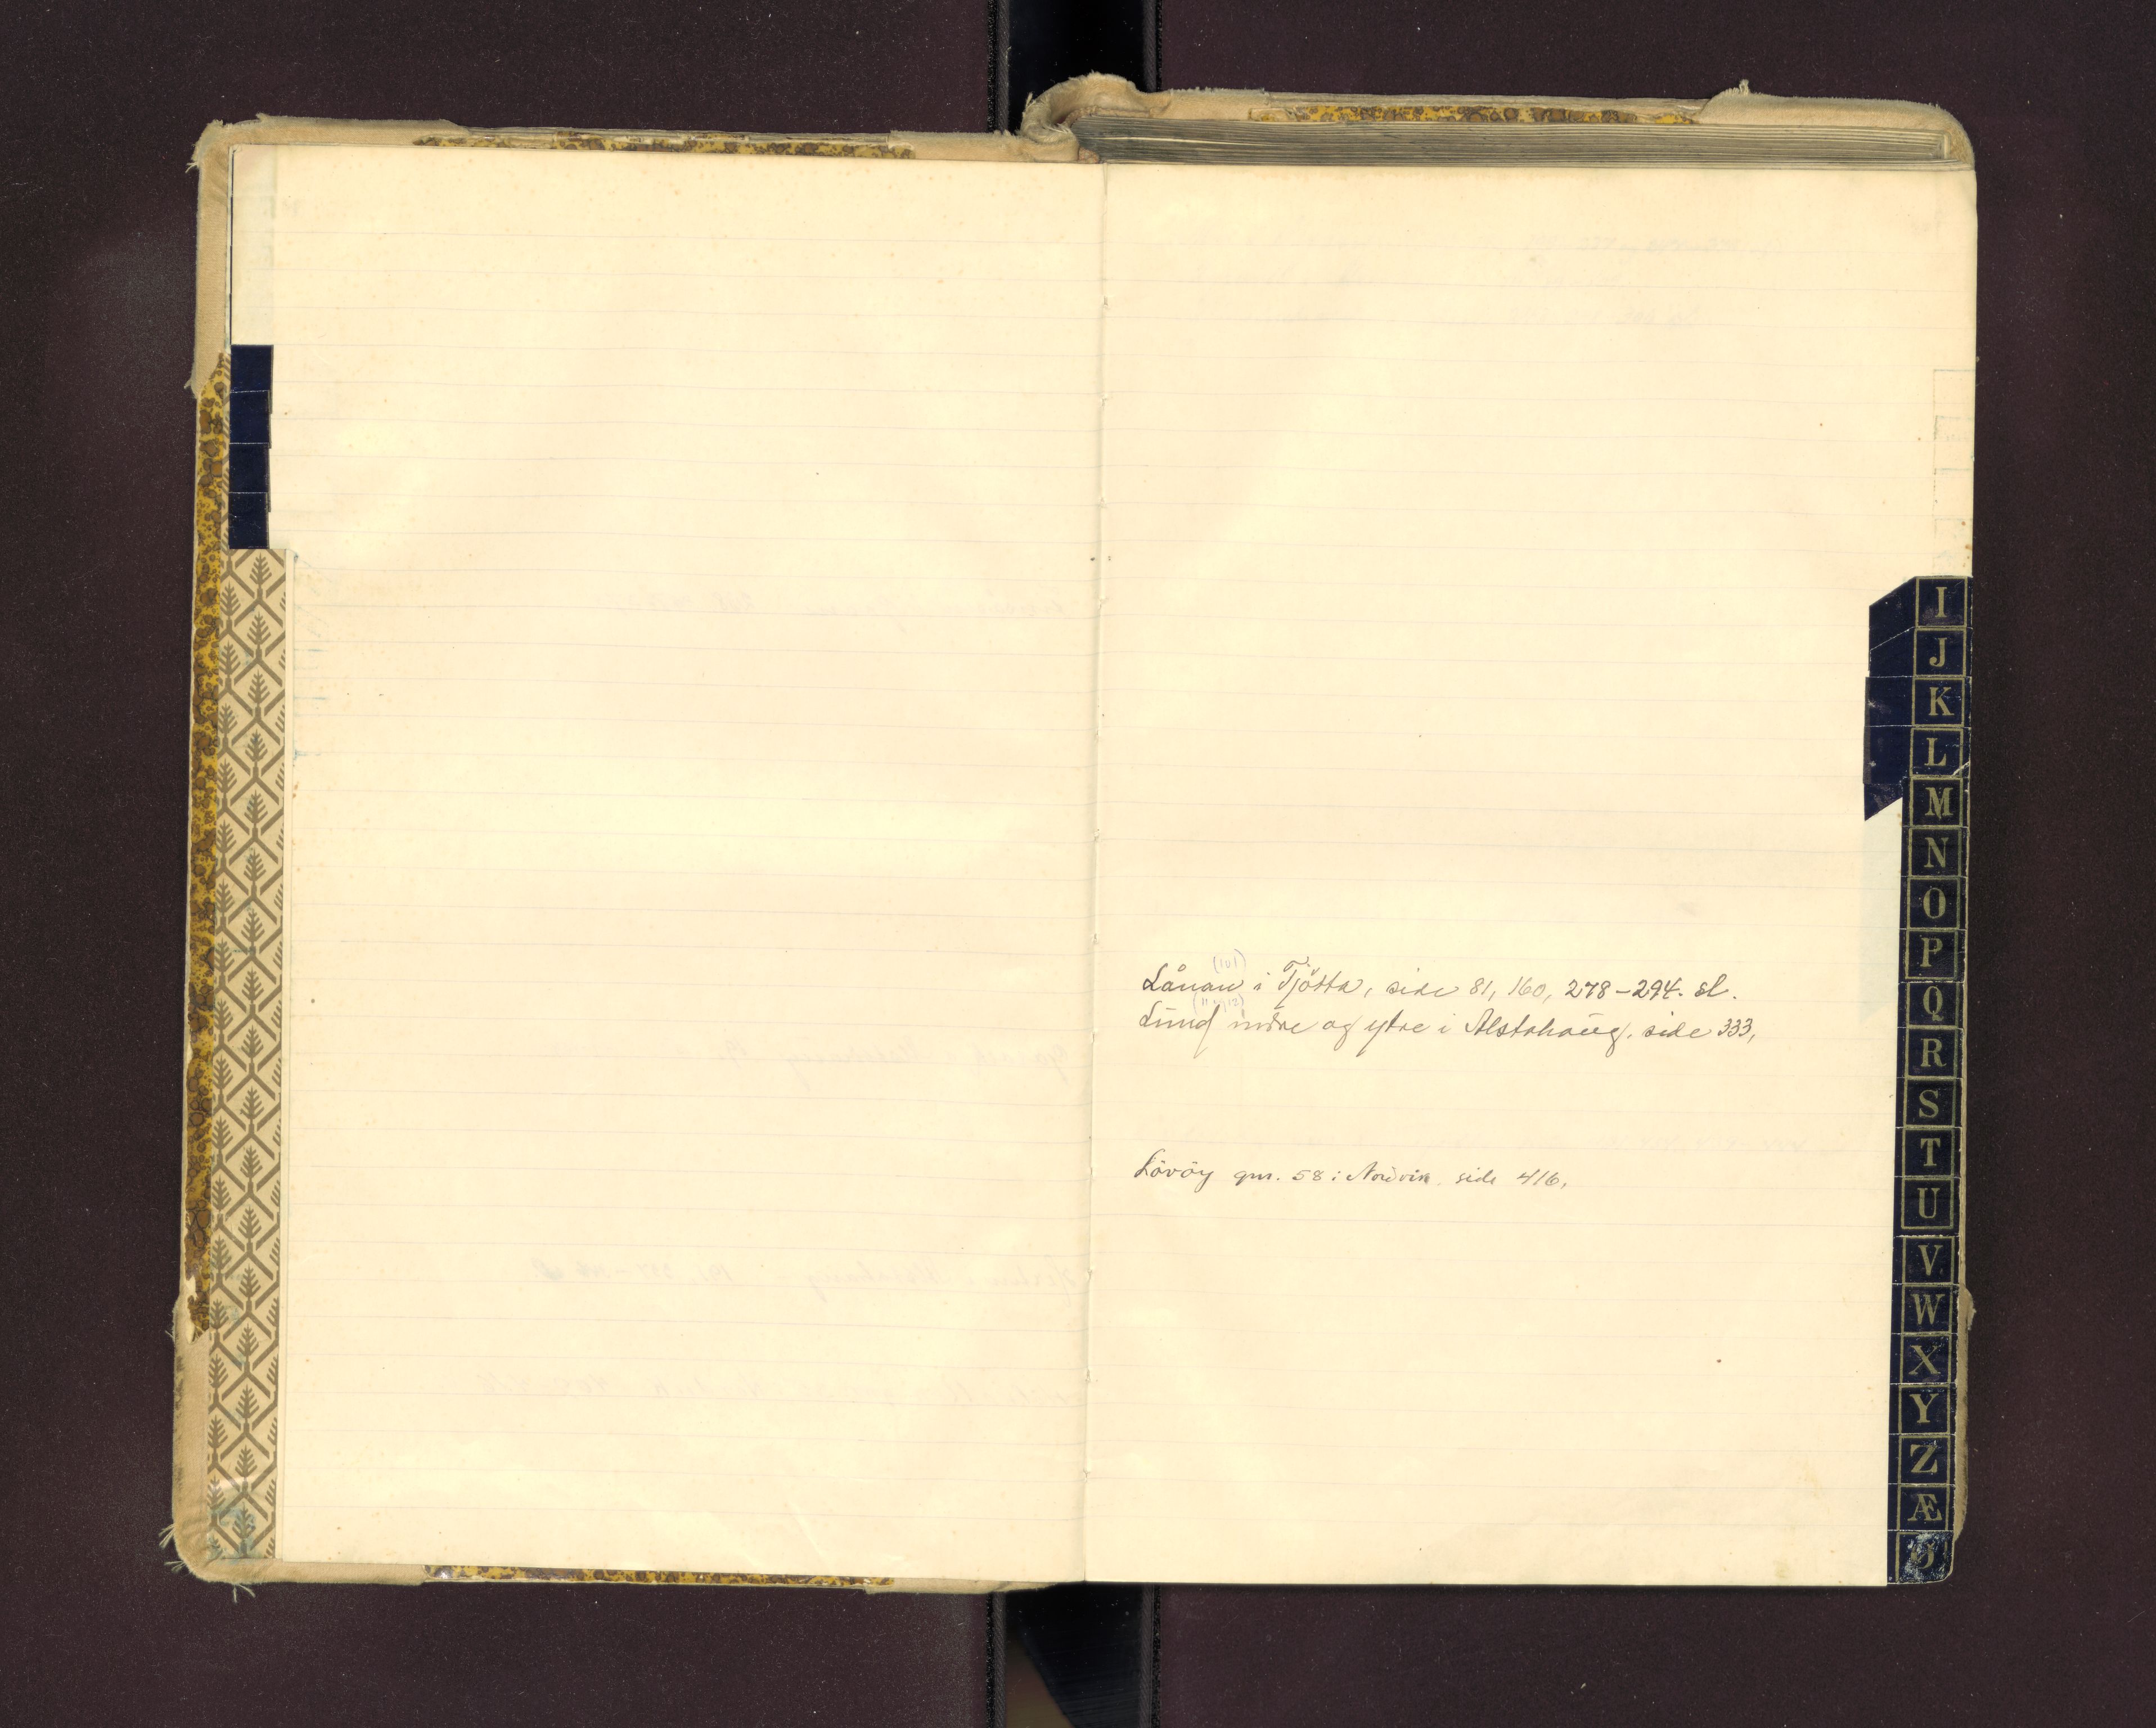 (101)
Lånan i Tjötta, side 81, 160, 278–294. sl.
(11 og 12)
Lund indre og ytre i Alstahaug. side 333,
Lövöy gnr. 58 i Nordvik side 416,
I
J
K
L
M
N
O
P
Q
R
S
T
U
V
W
X
Y
Z
Æ
Ø